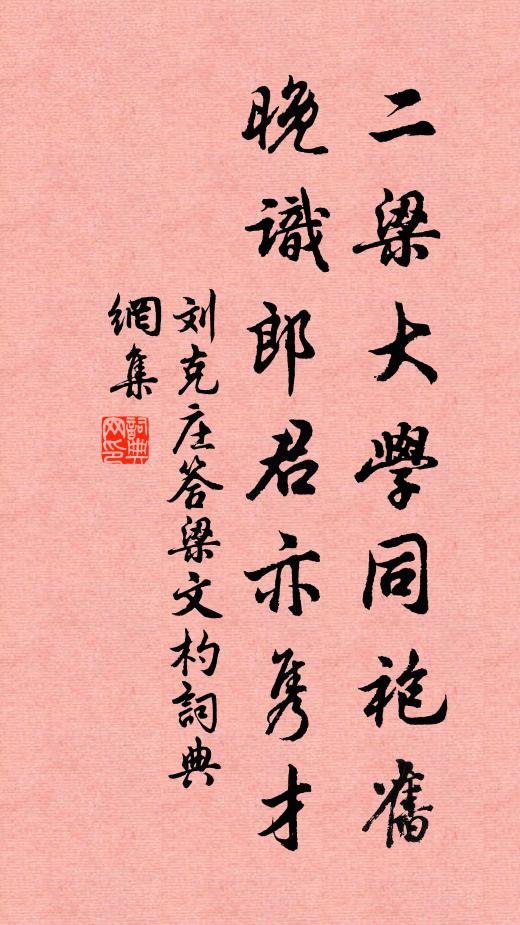 二梁大學同袍舊
晚識郎君亦隽才
刘克庄答梁文杓詞典
網集
詞典網印